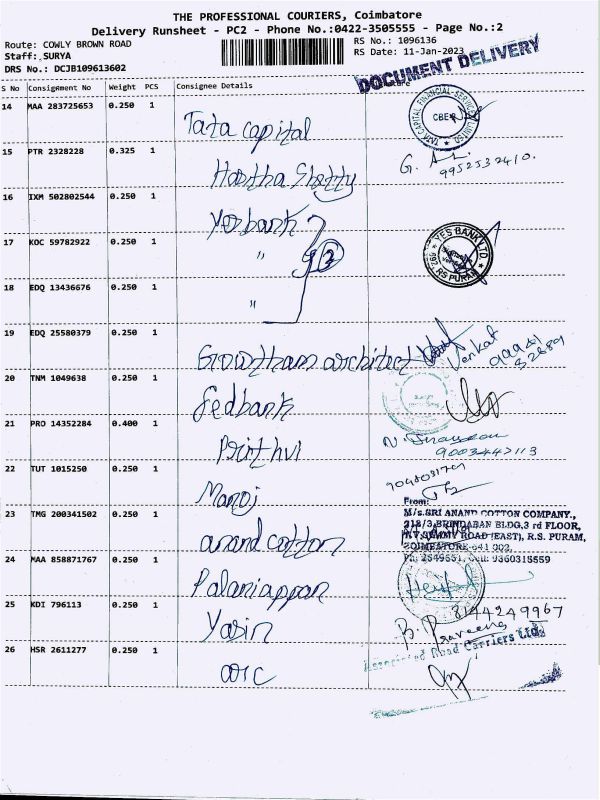 THE PROFESSIONAL COURIERS, Coimbatore
Delivery Runsheet - PC2 - Phone No.:0422-3505555 - Page No.:2
Route: COWLY BROWN ROAD
RS No.: 1096136
Staff: SURYA
RS Date: 11-Jan-2023
DRS No.: DCJB109613602
DOCUMENT DELIVERY
S No Consignment No Weight PCS Consignee Details
14 MAA 283725653 0.250 1 Tata capital
TATA CAPITAL FINANCIAL SERVICES LIMITED
CBE
15 PTR 2328228 0.325 1 Shetty
G. 9952532410.
16 IXM 502802544 0.250 1 Yesbank
17 KOC 59782922 0.250 1 "
3
YES BANK LTD.
RS PURAM
18 EDQ 13436676 0.250 1 "
19 EDQ 25580379 0.250 1 architect
Venkat
20 TNM 1049638 0.250 1 Fedbank
21 PRO 14352284 0.400 1 Prithvi
9003442113
22 TUT 1015250 0.250 1 Manoj
23 TMG 200341502 0.250 1 anand cotton
From:
M/s.SRI ANAND COTTON COMPANY.,
218/3,BRINDABAN BLDG,3 rd FLOOR,
ROAD (EAST), R.S. PURAM,
COIMBATORE-641 002.
24 MAA 858871767 0.250 1 Palaniappan
25 KDI 796113 0.250 1 Yasin
8144249967
B. Praveena
26 HSR 2611277 0.250 1 arc
Associated Road Carriers Ltd